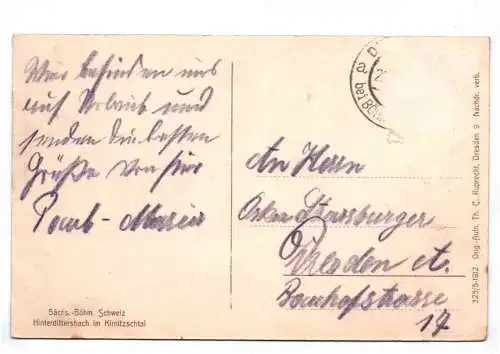 Wir befinden uns
auf Urlaub und
senden die besten
Grüße von hier
Marie
Sächs.-Böhm. Schweiz
Hinterdittersbach im Kirnitzschtal
An Herrn
Strassburger
Dresden A.
Bönischstrasse
14
325/5-1912 Orig.-Aufn. Th. C. Ruprecht, Dresden 9 Nachdr. verb.